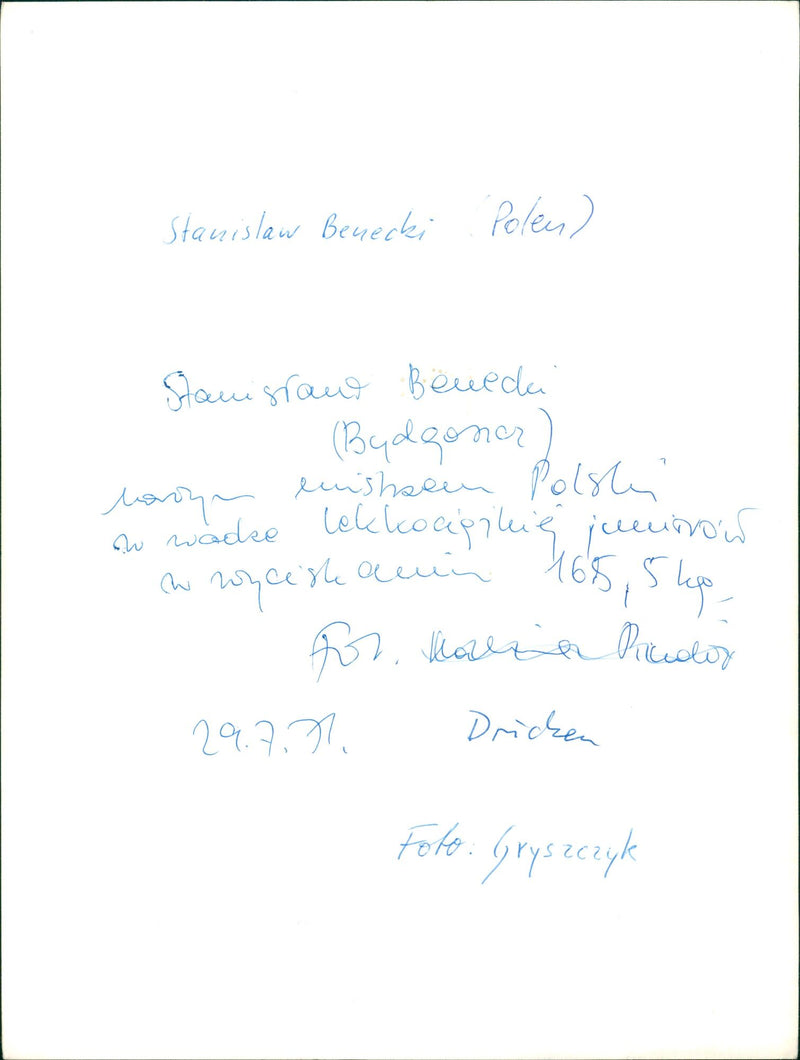 Stanislaw Benecki (Polen)
Stanisław Benecki
(Bydgoszcz)
nowym mistrzem Polski
w wadze lekkociężkiej juniorów
w wyciskaniu 165,5 kg
Fot.
29.7.71. Drücken
Foto: Gryszczyk